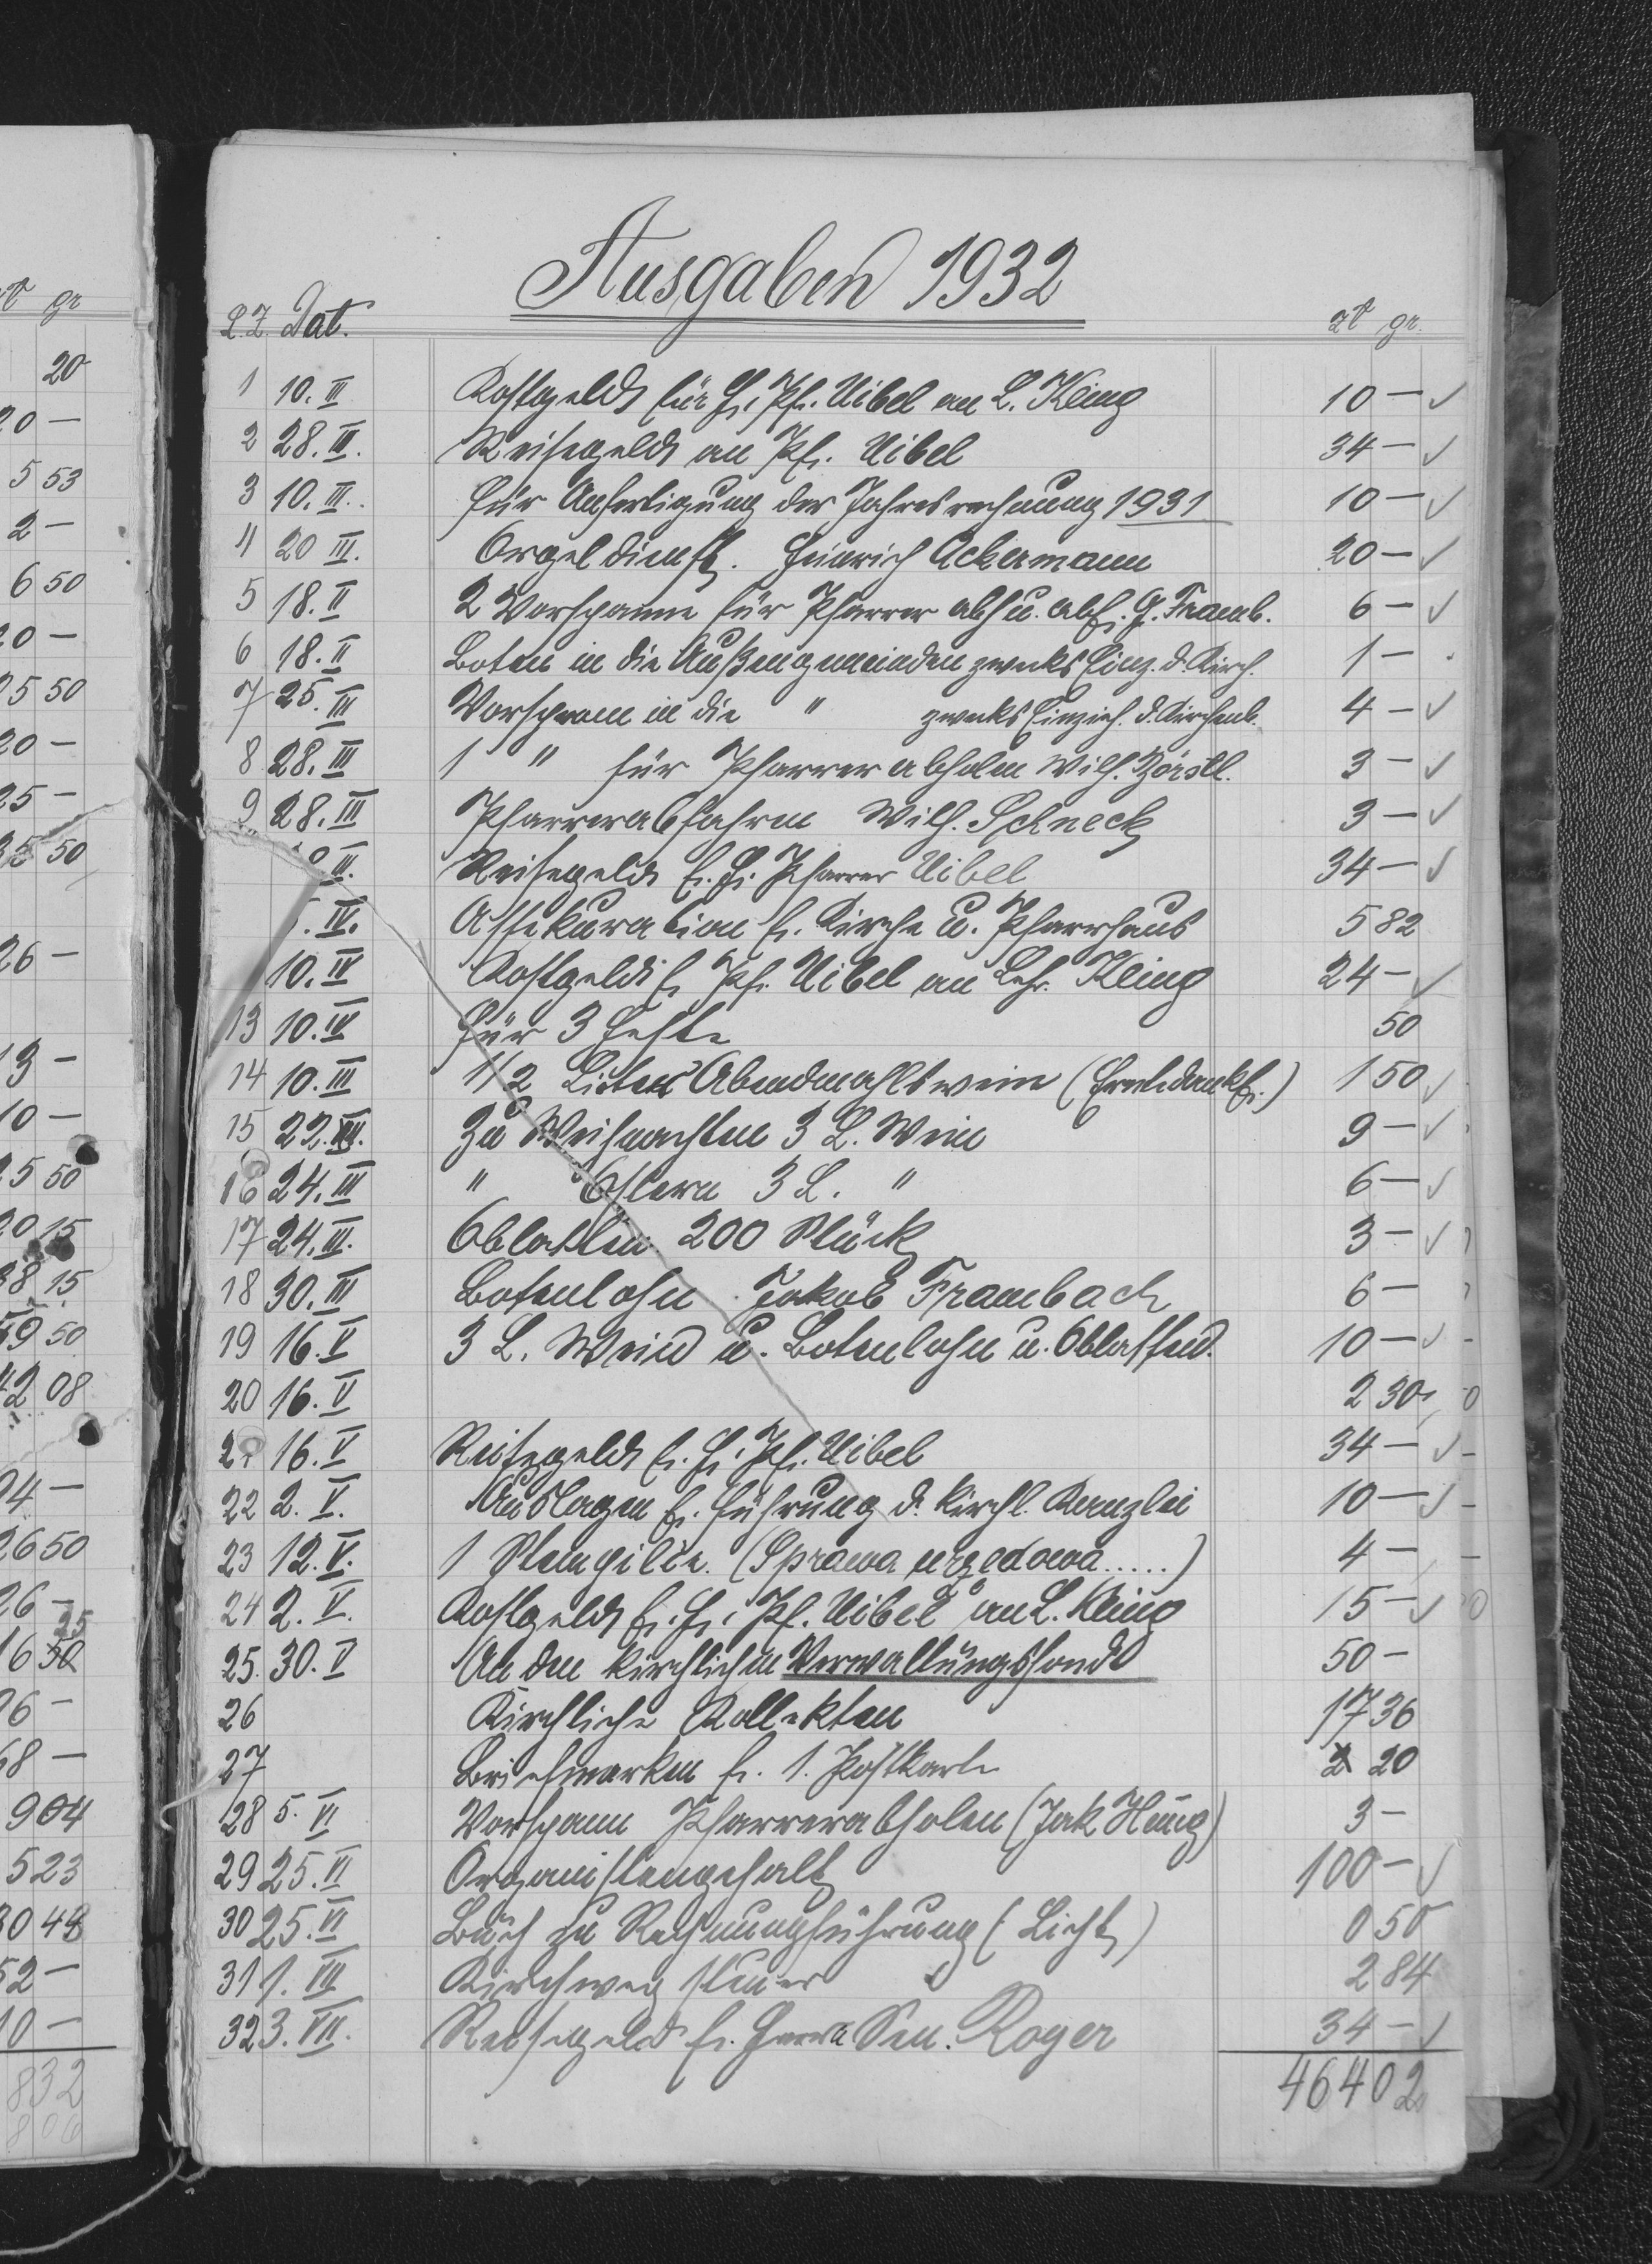 zł gr
20
20 —
5 53
2 —
6 50
20 —
25 50
20 —
25 —
35 50
26 —
13 —
10 —
25 50
20 15
38 15
59 50
42 08
94 —
26 50
26 —
25
16 50
26 —
68 —
9 04
5 23
30 48
52 —
10 —
832
806
Ausgaben 1932
L.Z. Dat. zł gr.
1 10. III Kostgeld für H. Pf. Uibel an L. Kling 10 — ✓
2 28. III. Reisegeld an Pf. Uibel 34 — ✓
3 10. III. für Anfertigung der Jahresrechnung 1931 10 — ✓
4 20 III. Orgeldienst. Heinrich Ackermann 20 — ✓
5 18. II 2 Vorspanne für Pfarrer abh u. abf. G. Framb. 6 — ✓
6 18. II Boten in die Außengemeinden zwecks Einz. d. Kirch. 1 —
7 25. III Vorspann in die " zwecks Einzieh. d. Kirchenb. 4 — ✓
8 28. III 1 " für Pfarrer abholen Wilh. 3 — ✓
9 28. III Pfarrerabfahren Wilh. Schneck 3 — ✓
III. Reisegeld f. H. Pfarrer Uibel 34 — ✓
5. IV. Assekuration f. Kirche u. Pfarrhaus 5 82
10. IV Kostgeld f. Pf. Uibel an Lehr. Kling 24 — ✓
13 10. IV für 3 Hefte 50
14 10. III 1/2 Liter Abendmahlswein (Erntedankf.) 1 50 ✓
15 22. XII. Zu Weihnachten 3 L. Wein 9 — ✓
16 24. III " Ostern 3 L. " 6 — ✓
17 24. III. Oblatten 200 Stück 3 — ✓
18 30. III Botenlohn Jakob Frambach 6 —
19 16. V 3 L. Wein u. Botenlohn u. Oblatten. 10 — ✓
20 16. V 2 30
21 16. V Reisegeld f. H. Pf. Uibel 34 — ✓
22 2. V. Auslagen f. Führung d. kirchl. Kanzlei 10 — ✓
23 12. V. 1 Stampilie. (Sprawa urzędowa.....) 4 —
24 2. V. Kostgeld f. H. Pf. Uibel an L. Kling 15 — ✓
25. 30. V An den kirchlichen Verwaltungsfond 50 —
26 Kirchliche Kollekten 17 36
27 Briefmarken f. 1. Postkarte 20
28 5. VI Vorspann Pfarrerabholen (Jak Heung) 3 —
29 25. VI Organistengehalt 100 — ✓
30 25. VI Buch zu Rechnungführung (Licht) 0 50
31 1. VII Kirchweg steuer 2 84
32 3. VII. Reisegeld f. Herrn Sen. Royer 34 — ✓
464 02